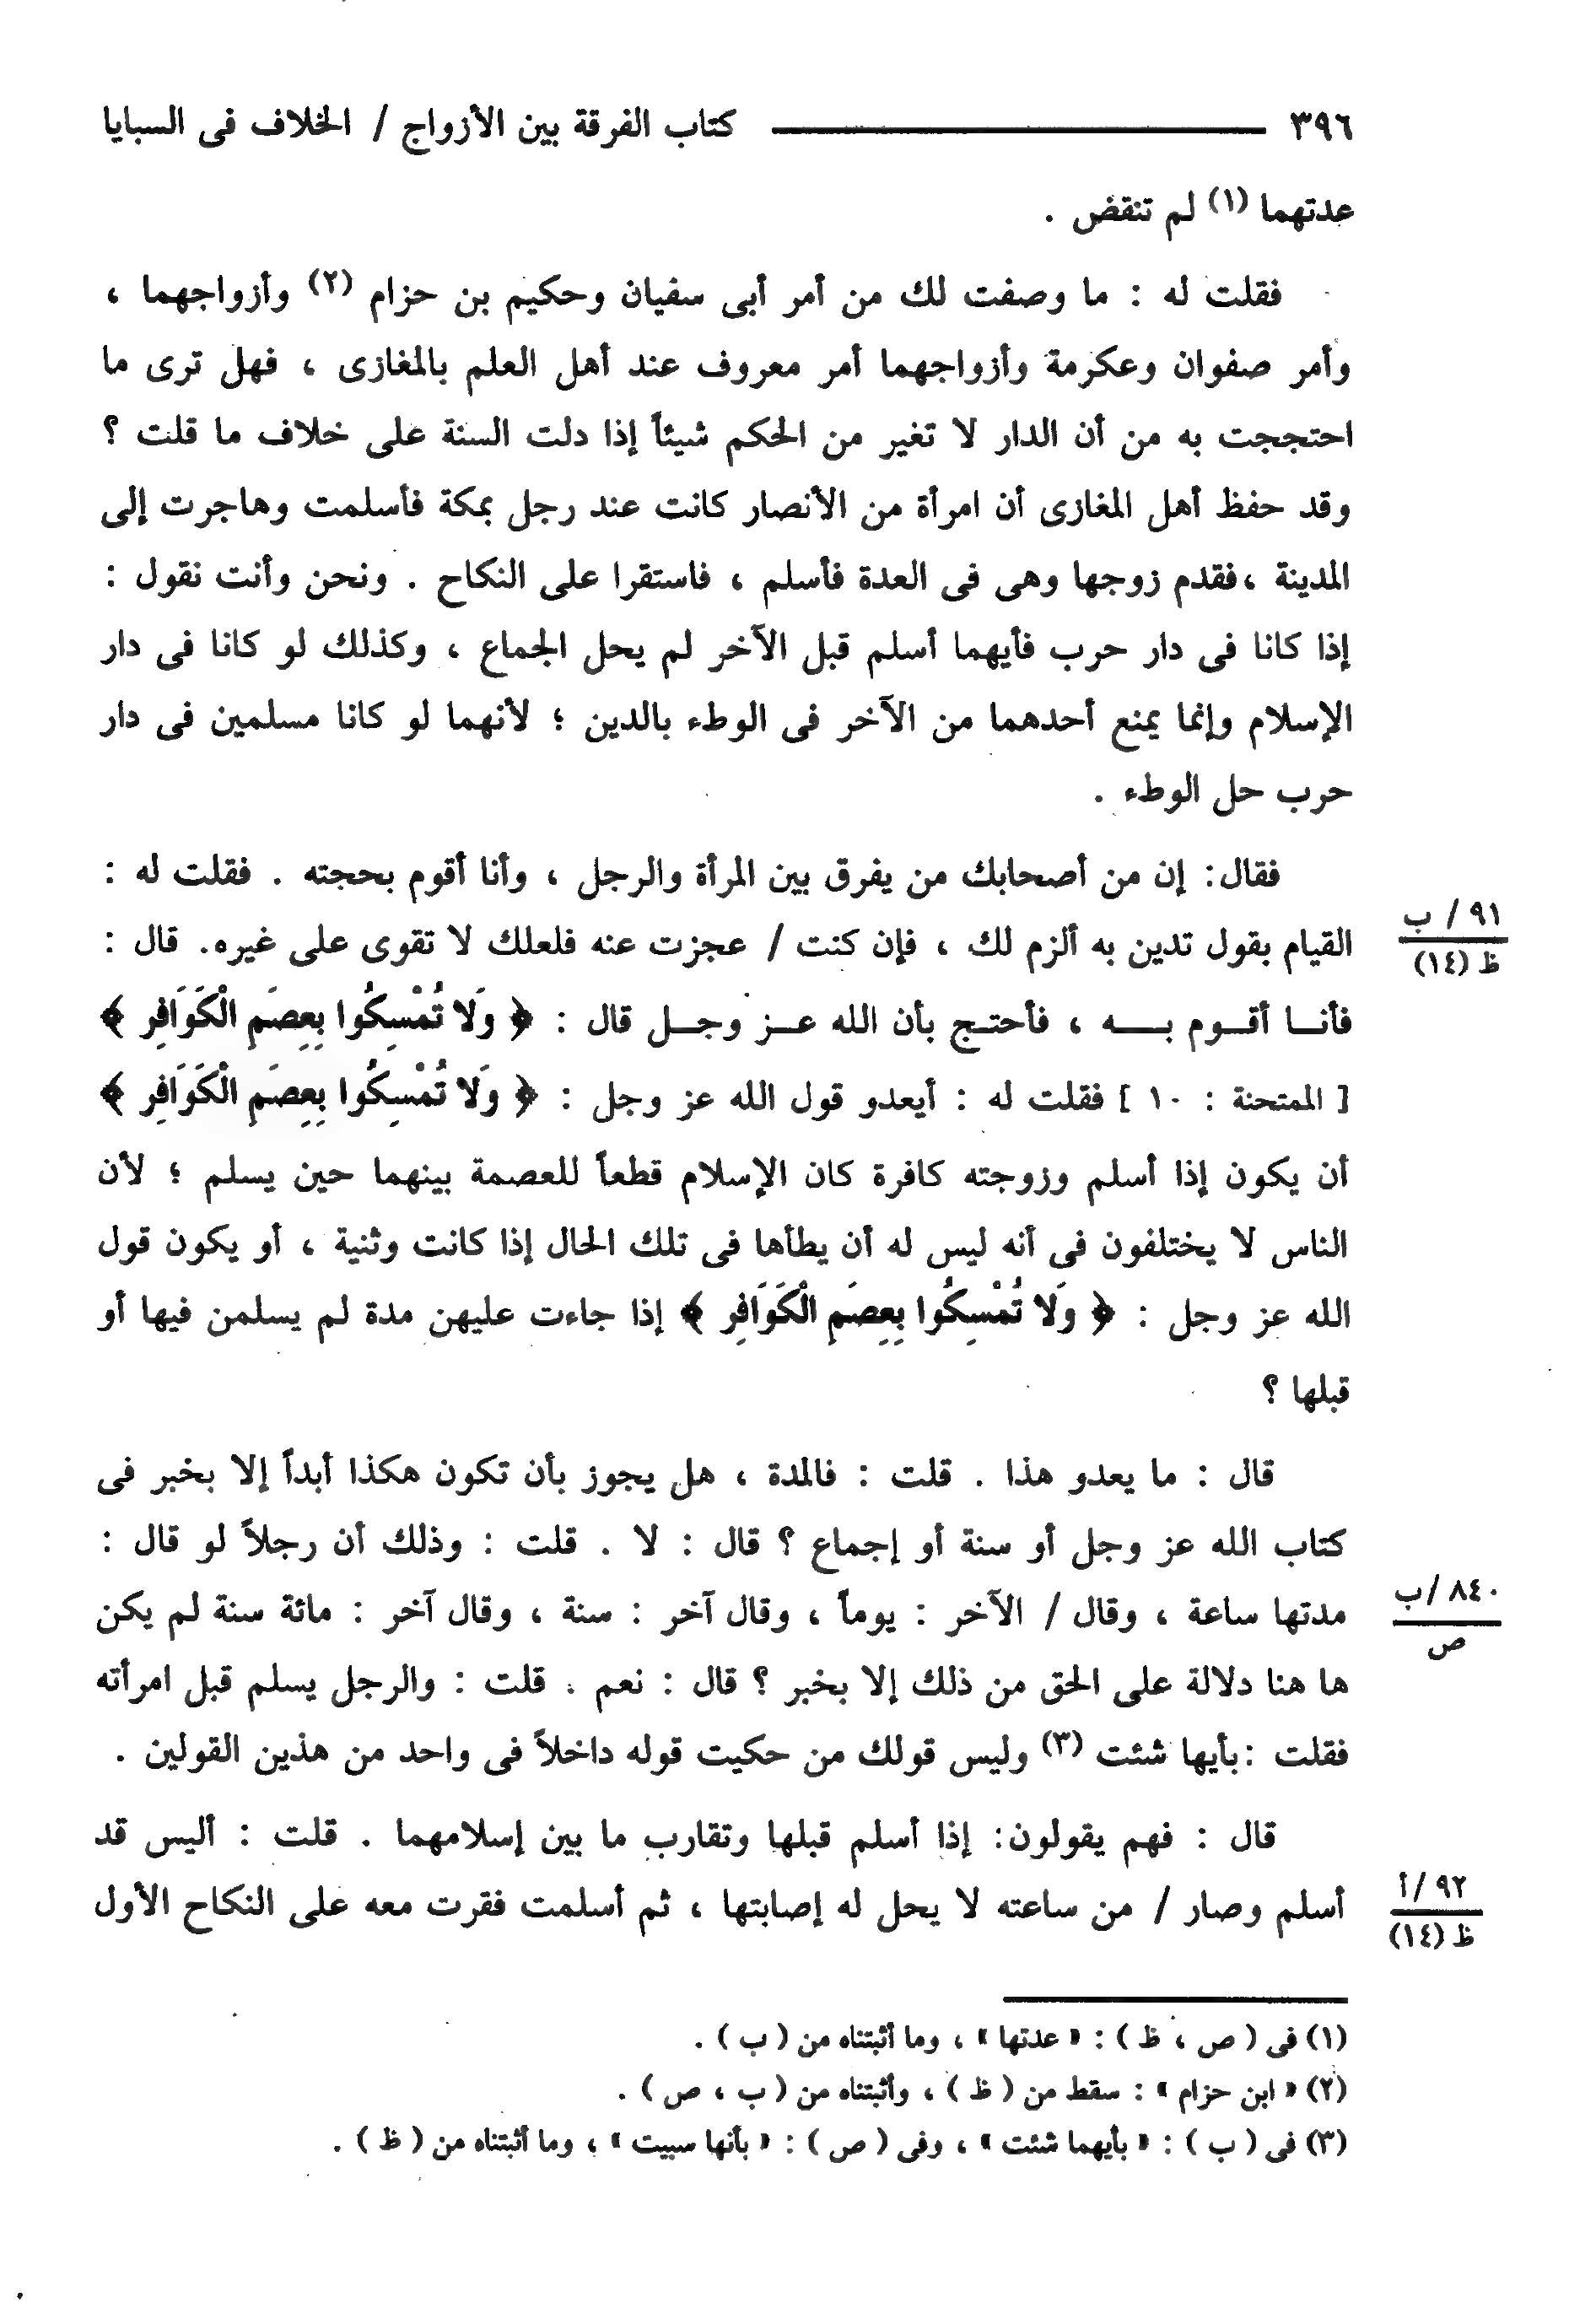 ٣٩٦ كتاب الفرقة بين الأزواج / الخلاف فى السبايا
عدتهما (١) لم تنقض .
فقلت له : ما وصفت لك من أمر أبى سفيان وحكيم بن حزام (٢) وأزواجهما ،
وأمر صفوان وعكرمة وأزواجهما أمر معروف عند أهل العلم بالمغازى ، فهل ترى ما
احتججت به من أن الدار لا تغير من الحكم شيئاً إذا دلت السنة على خلاف ما قلت ؟
وقد حفظ أهل المغازى أن امرأة من الأنصار كانت عند رجل بمكة فأسلمت وهاجرت إلى
المدينة ،فقدم زوجها وهى فى العدة فأسلم ، فاستقرا على النكاح . ونحن وأنت نقول :
إذا كانا فى دار حرب فأيهما أسلم قبل الآخر لم يحل الجماع ، وكذلك لو كانا فى دار
الإسلام وإنما يمنع أحدهما من الآخر فى الوطء بالدين ؛ لأنهما لو كانا مسلمين فى دار
حرب حل الوطء .
فقال: إن من أصحابك من يفرق بين المرأة والرجل ، وأنا أقوم بحجته . فقلت له :
٩١ / ب
القيام بقول تدين به ألزم لك ، فإن كنت / عجزت عنه فلعلك لا تقوى على غيره. قال :
ظ (١٤)
فأنــا أقــوم بــــه ، فأحتــج بأن الله عــز وجــل قال : ﴿ وَلا تُمْسِكُوا بِعِصَمِ الْكَوَافِرِ ﴾
[ الممتحنة : ١٠ ] فقلت له : أيعدو قول الله عز وجل : ﴿ وَلا تُمْسِكُوا بِعِصَمِ الْكَوَافِرِ ﴾
أن يكون إذا أسلم وزوجته كافرة كان الإسلام قطعاً للعصمة بينهما حين يسلم ؛ لأن
الناس لا يختلفون فى أنه ليس له أن يطأها فى تلك الحال إذا كانت وثنية ، أو يكون قول
الله عز وجل : ﴿ وَلا تُمْسِكُوا بِعِصَمِ الْكَوَافِرِ ﴾ إذا جاءت عليهن مدة لم يسلمن فيها أو
قبلها ؟
قال : ما يعدو هذا . قلت : فالمدة ، هل يجوز بأن تكون هكذا أبداً إلا بخبر فى
كتاب الله عز وجل أو سنة أو إجماع ؟ قال : لا . قلت : وذلك أن رجلاً لو قال :
٨٤٠ /ب
مدتها ساعة ، وقال / الآخر : يوماً ، وقال آخر : سنة ، وقال آخر : مائة سنة لم يكن
ص
ها هنا دلالة على الحق من ذلك إلا بخبر ؟ قال : نعم . قلت : والرجل يسلم قبل امرأته
فقلت :بأيها شئت (٣) وليس قولك من حكيت قوله داخلاً فى واحد من هذين القولين .
قال : فهم يقولون: إذا أسلم قبلها وتقارب ما بين إسلامهما . قلت : أليس قد
٩٢ /أ
أسلم وصار / من ساعته لا يحل له إصابتها ، ثم أسلمت فقرت معه على النكاح الأول
ظ (١٤)
(١) فى ( ص ، ظ ) : « عدتها » ، وما أثبتناه من ( ب ) .
(٢) « ابن حزام » : سقط من ( ظ ) ، وأثبتناه من ( ب ، ص ) .
(٣) فى ( ب ) : « بأيهما شئت » ، وفى ( ص ) : « بأنها سبيت » ، وما أثبتناه من ( ظ ) .